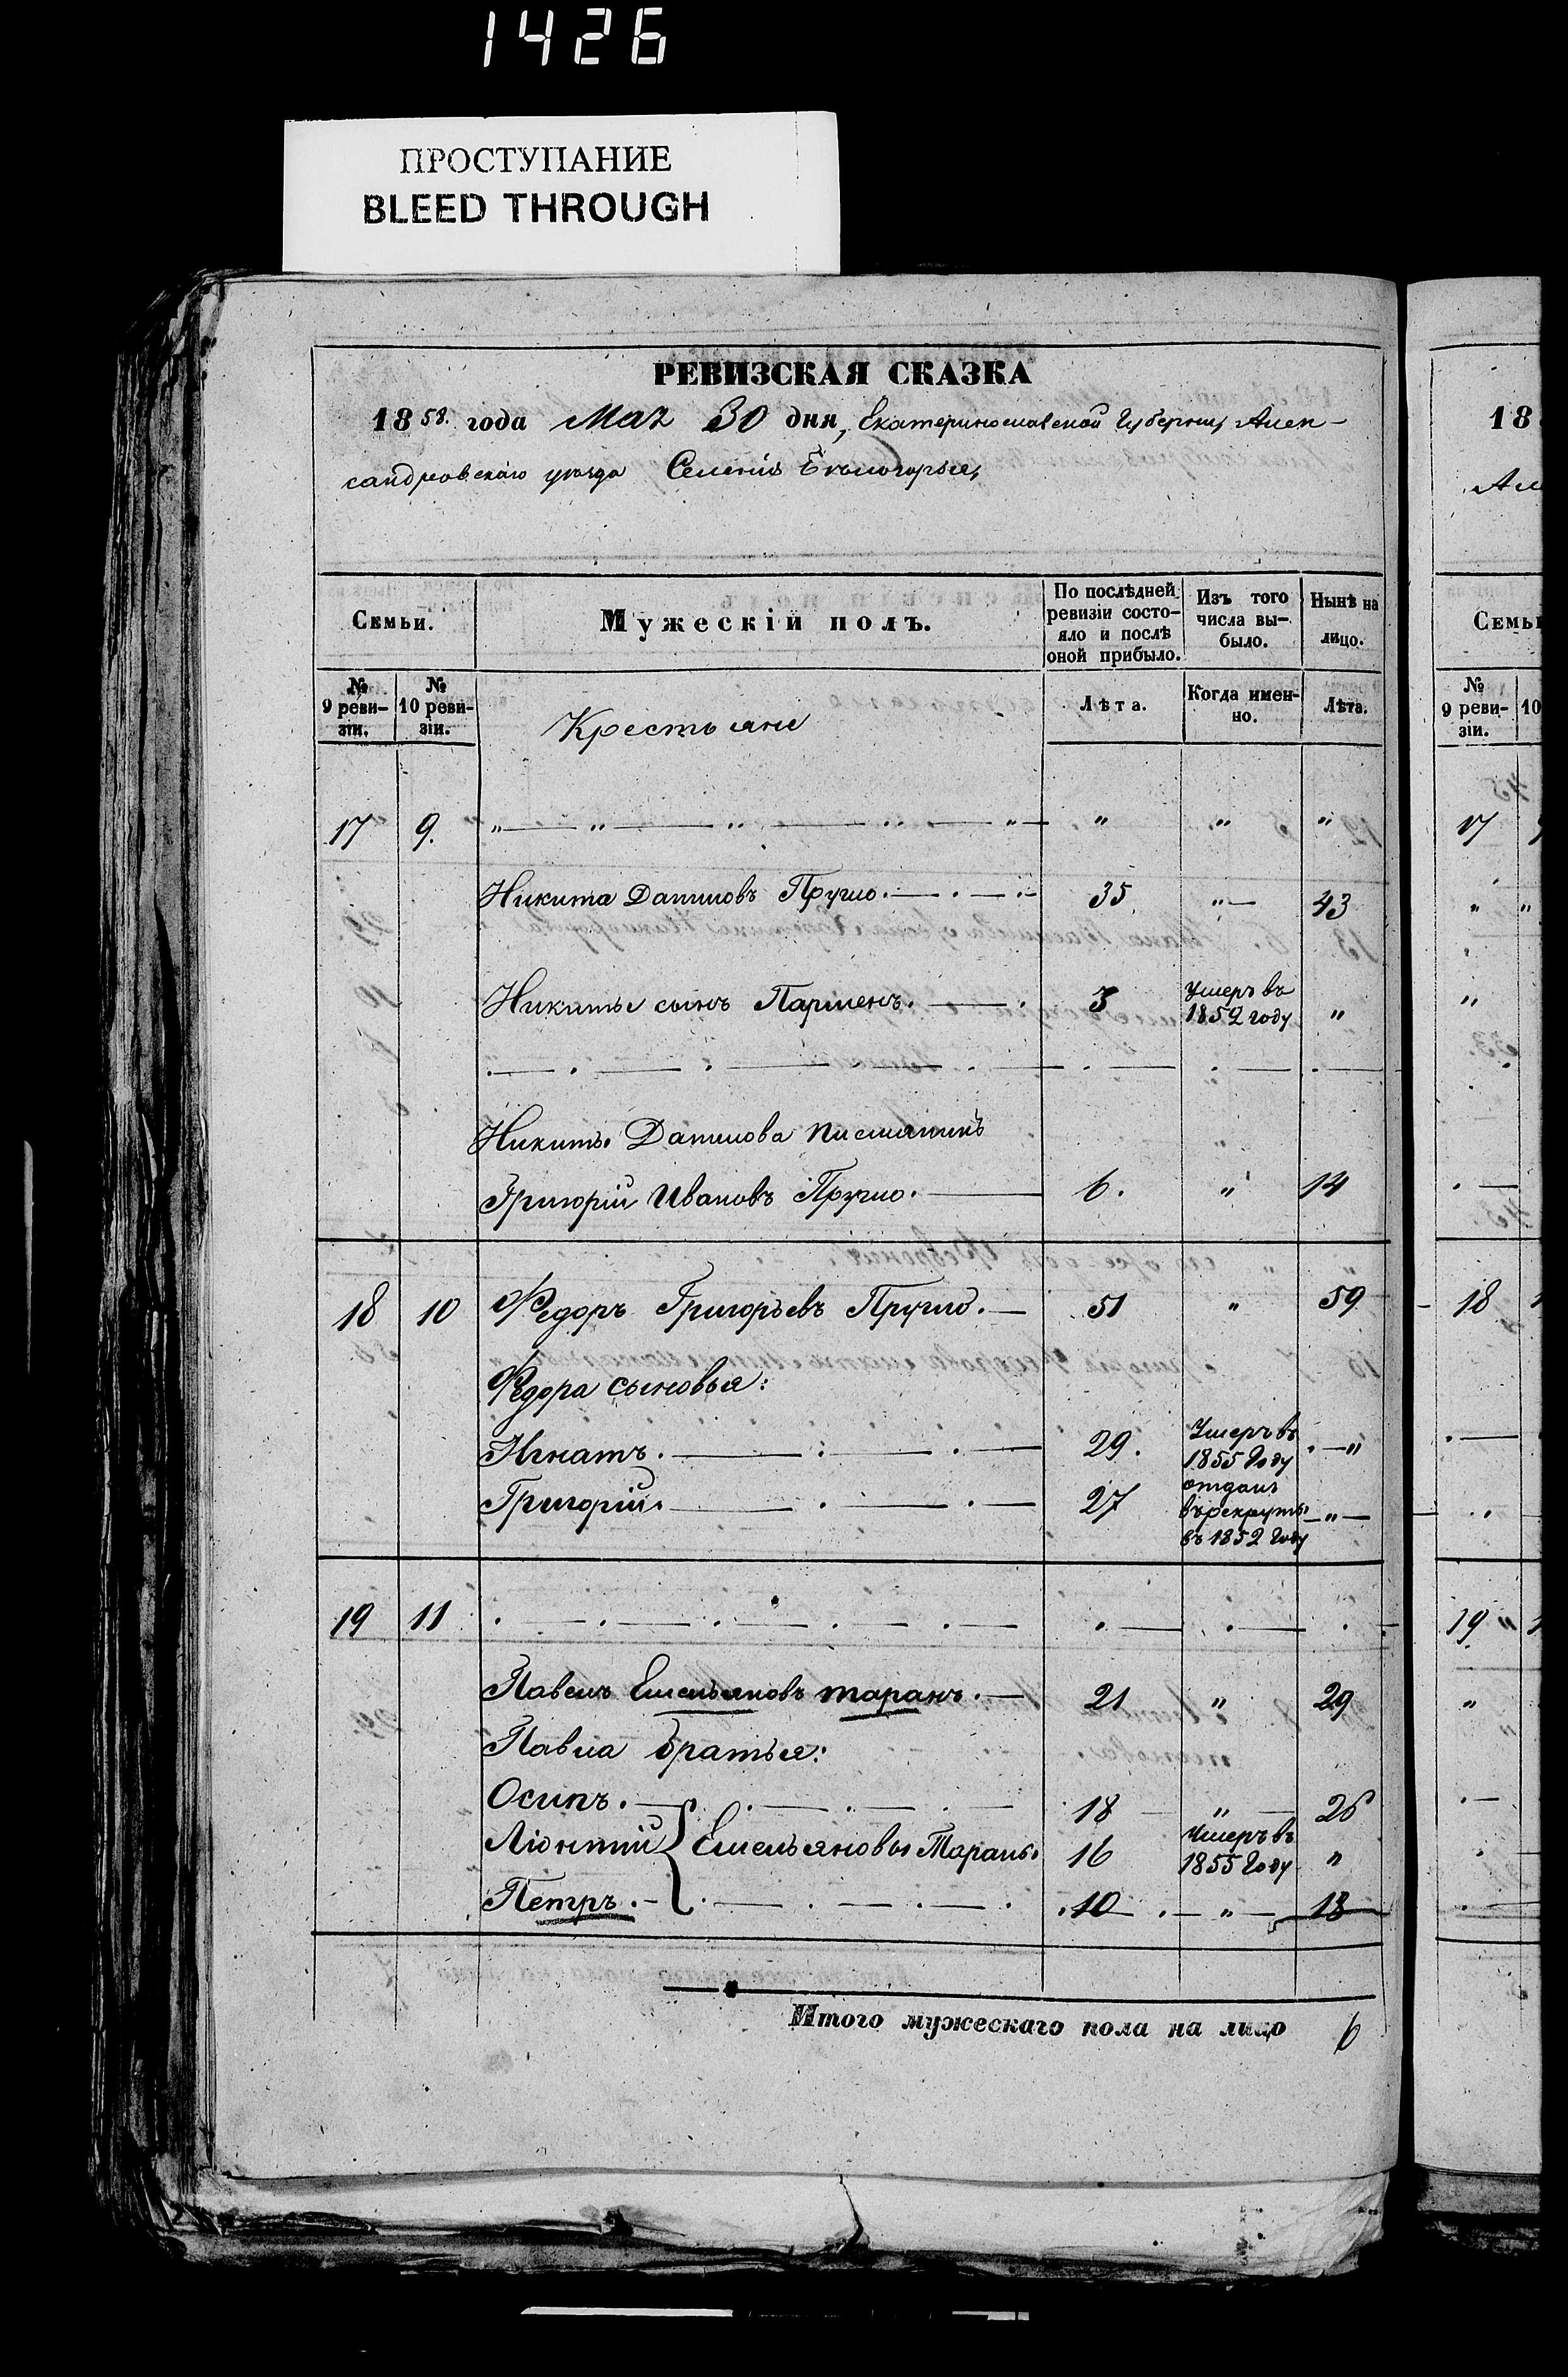 1426
ПРОСТУПАНИЕ
BLEED THROUGH
РЕВИЗСКАЯ СКАЗКА
1858. года Мая 30 дня, Екатеринославской Губерніи Алек-
сандровскаго уѣзда Селенія Бѣлогорья,
Семьи. Мужескій полъ. По послѣдней ревизіи состо-яло и послѣ оной прибыло. Изъ того числа вы-было. Нынѣ на лицо.
№ 9 реви-зіи. № 10 реви-зіи. Крестьяне Лѣта. Когда имен-но. Лѣта.
17 9. " " " " " " " "
Никита Даниловъ 35 " 43
Никиты сынъ Парменъ. 3 Умеръ въ 1852 году "
Никиты Данилова племянникъ
Григорій Ивановъ 6. " 14
18 10 Ѳедоръ Григорьевъ 51 " 59
Ѳедора сыновья:
Игнатъ. 29. Умеръ въ 1855 Году "
Григорій. 27 отданъ въ рекруты въ 1852 Году "
19 11
Павелъ Емельяновъ таранъ. 21 " 29
Павла братья:
Осипъ. 18 " 26
Ліонтій } Емельяновы Тараны 16 Умеръ въ 1855 Году "
Петръ. 10 " 18
Итого мужескаго пола на лицо 6
18
Ал
Семьи
№ 9 реви-зіи. 10
17
"
"
18
19
"